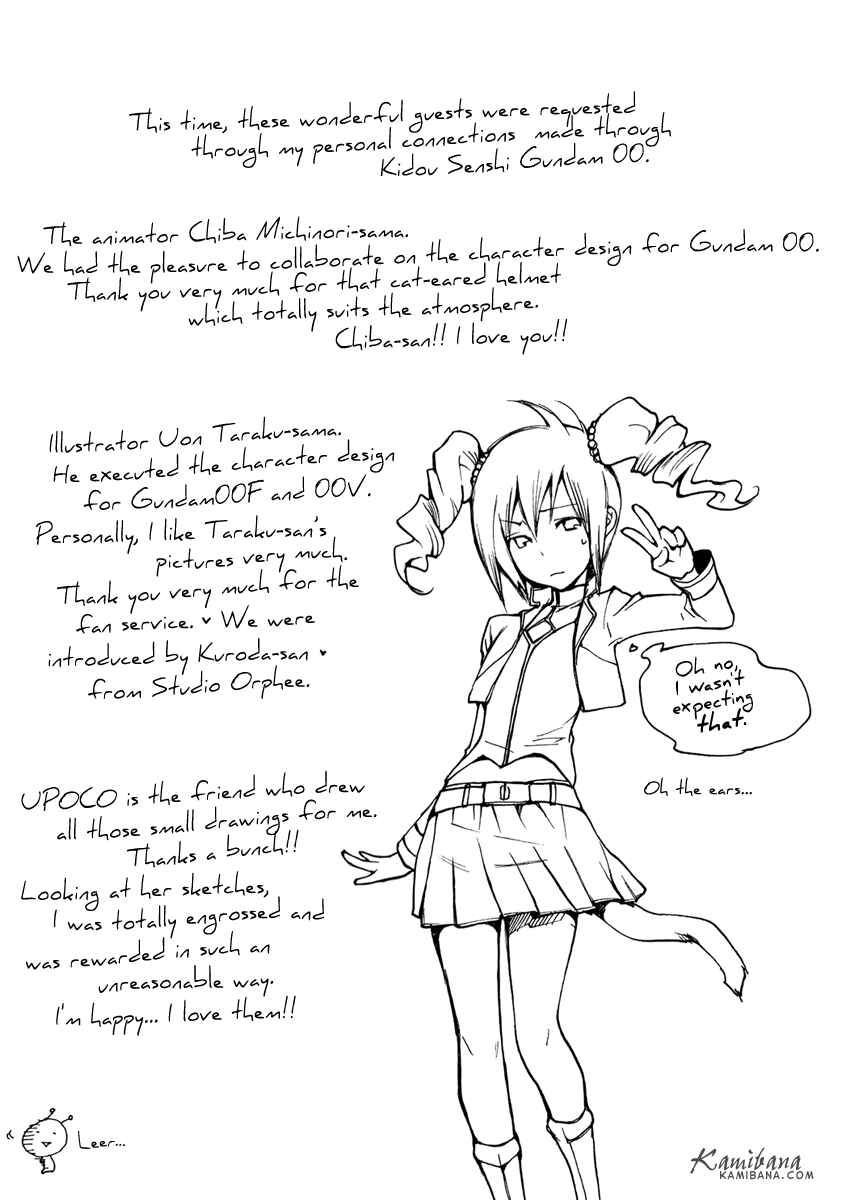 This time, these wonderful guests were requested
through my personal connections made through
Kidou Senshi Gundam 00.
The animator Chiba Michinori-sama.
We had the pleasure to collaborate on the character design for Gundam 00.
Thank you very much for that cat-eared helmet
which totally suits the atmosphere.
Chiba-san!! I love you!!
Illustrator Uon Taraku-sama.
He executed the character design
for Gundam00F and 00V.
Personally, I like Taraku-san's
pictures very much.
Thank you very much for the
fan service. ♥ We were
introduced by Kuroda-san ♥
from Studio Orphee.
Oh no,
I wasn't
expecting
that.
Oh the ears...
UPOCO is the friend who drew
all those small drawings for me.
Thanks a bunch!!
Looking at her sketches,
I was totally engrossed and
was rewarded in such an
unreasonable way.
I'm happy... I love them!!
Leer...
Kamibana
KAMIBANA.COM